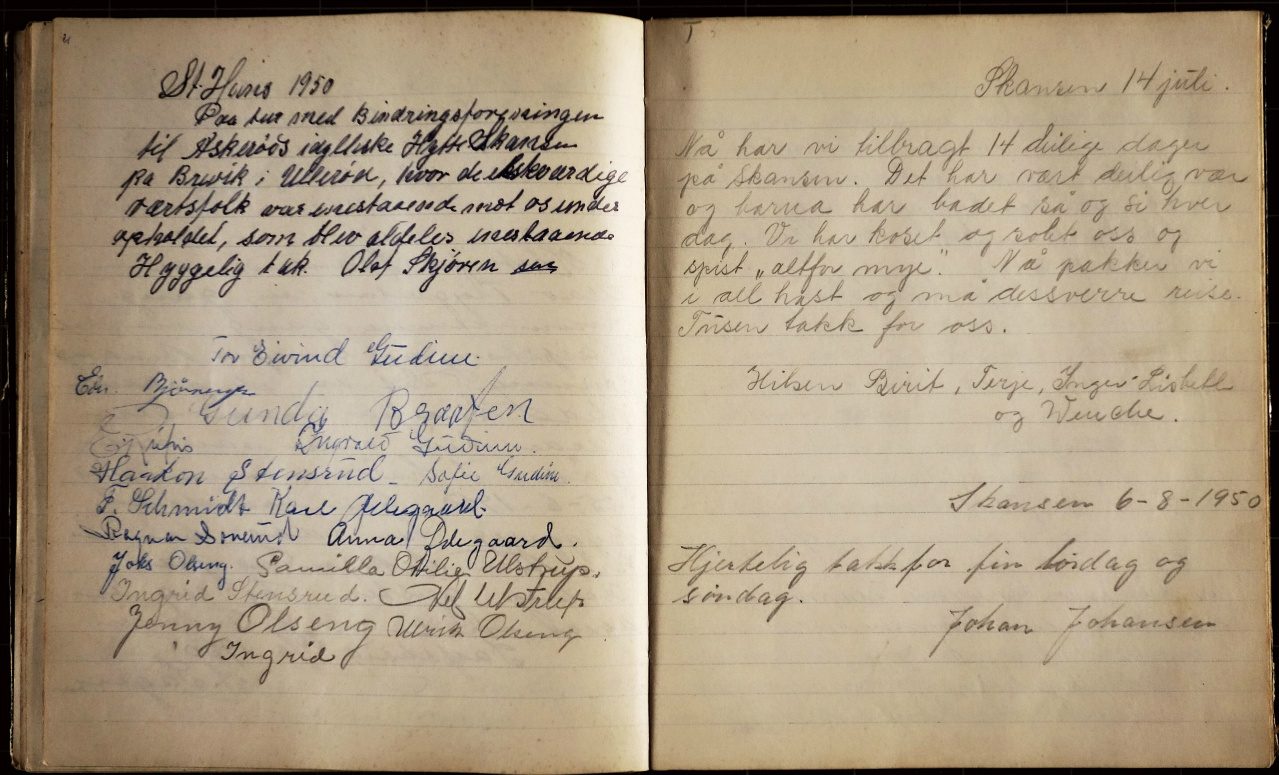 St. Hans 1950
Paa tur med Bindringsforeningen
til Askerøds idylliske Hytte Skansen
pa Brevik i Ullerød, hvor de elskværdige
værtsfolk var enestaaende mot os under
opholdet, som blev aldeles enestaaende
Hyggelig tak. Olof Skjøren
Tor Eivind Gudim.
Gunda Braaten
Ingvald Gudim.
Haakon Stensrud - Sofie Gudim.
F. Schmidt Kare Ødegaard.
Ragnar Anna Ødegaard.
Joks Olseng. Pamilla Otilie Ulstrup.
Ingrid Stensrud. Ulstrup
Jenny Olseng Ulrik Olseng
Ingrid
Skansen 14 juli.
Nå har vi tilbragt 14 deilige dager
på Skansen. Det har vært deilig vær
og barna har badet så og si hver
dag. Vi har koset og solet oss og
spist „altfor mye". Nå pakker vi
i all hast og må dessverre reise.
Tusen takk for oss.
Hilsen Birit, Terje, Inger-Lisbeth
og Wenche.
Skansen 6-8-1950
Hjertelig takk for fin lørdag og
søndag.
Johan Johansen